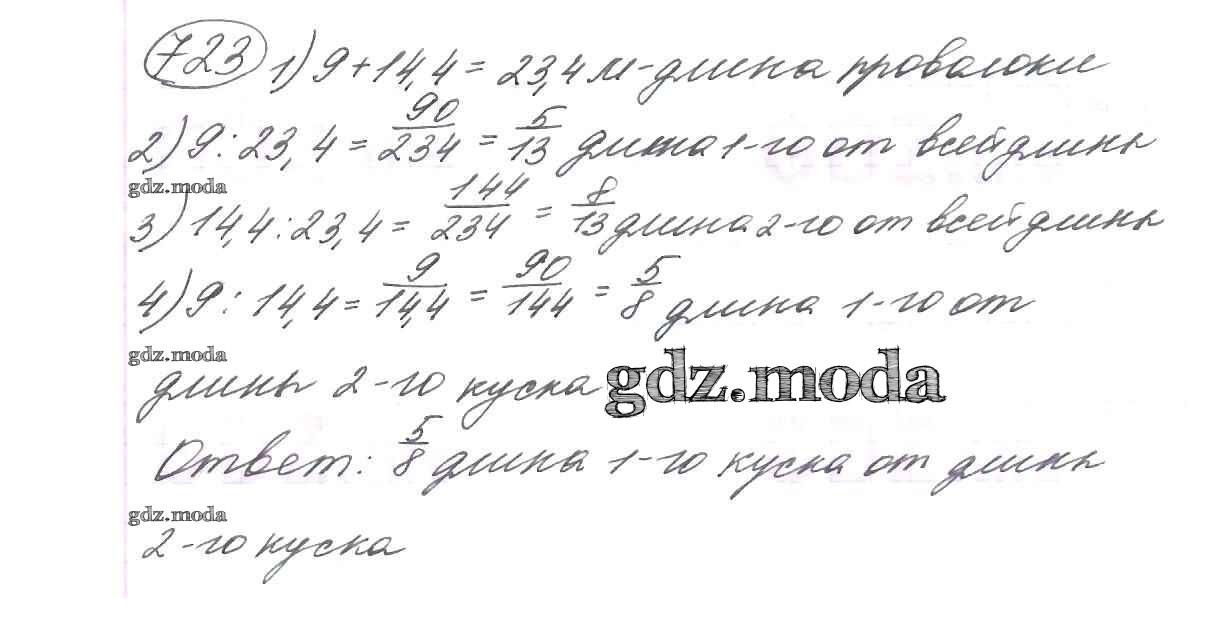 723 1) 9 + 14,4 = 23,4 м - длина проволоки
2) 9 : 23,4 = 90/234 = 5/13 длина 1-го от всей длины
gdz.moda
3) 14,4 : 23,4 = 144/234 = 8/13 длина 2-го от всей длины
4) 9 : 14,4 = 9/14,4 = 90/144 = 5/8 длина 1-го от
gdz.moda
длины 2-го куска gdz.moda
Ответ: 5/8 длина 1-го куска от длины
gdz.moda
2-го куска